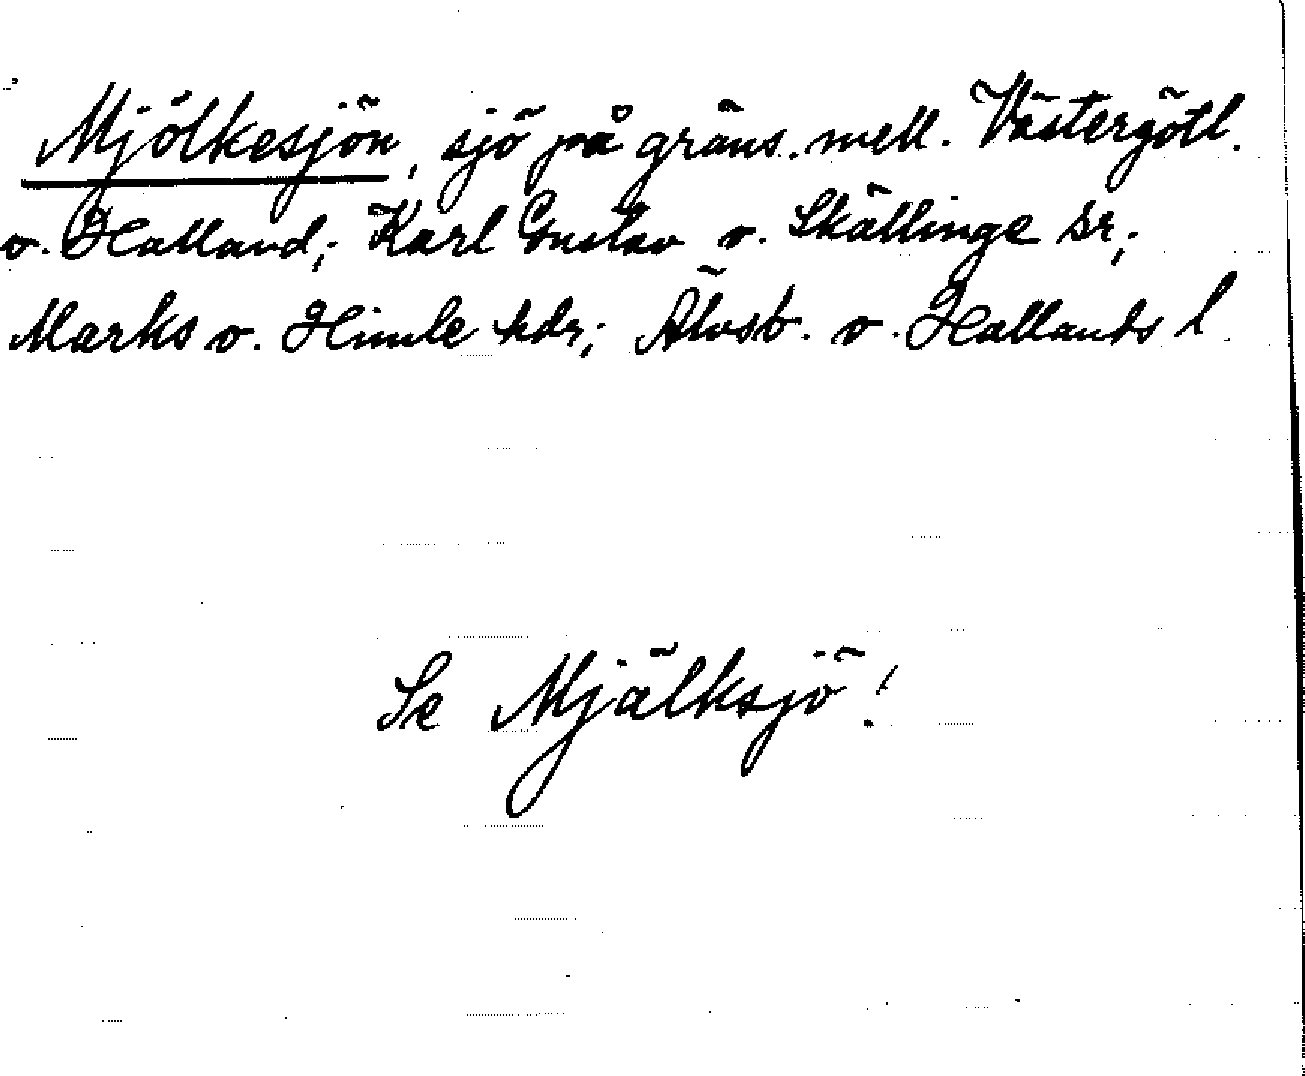 Mjölkesjön, sjö på gräns. mell. Västergötl.
o. Halland; Karl Gustav o. Skällinge sr;
Marks o. Himle hdr; Älvsb. o. Hallands l
Se Mjälksjö!